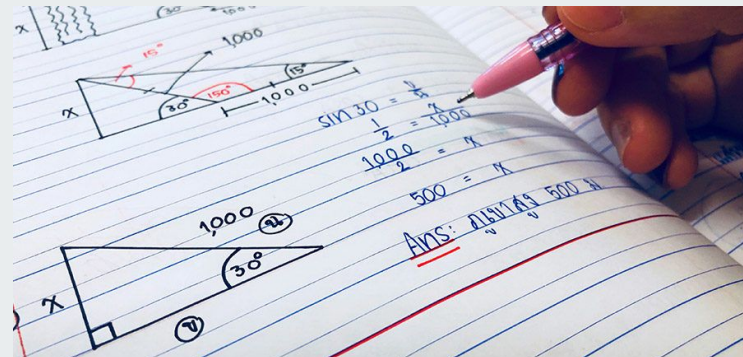 x
30°
1,000
15°
1,000
x
30°
150°
15°
1,000
sin 30 =
1/2 = x/1,000
1,000/2 = x
500 = x
Ans: ภูเขาสูง 500 ม
1,000
ฉ
x
30°